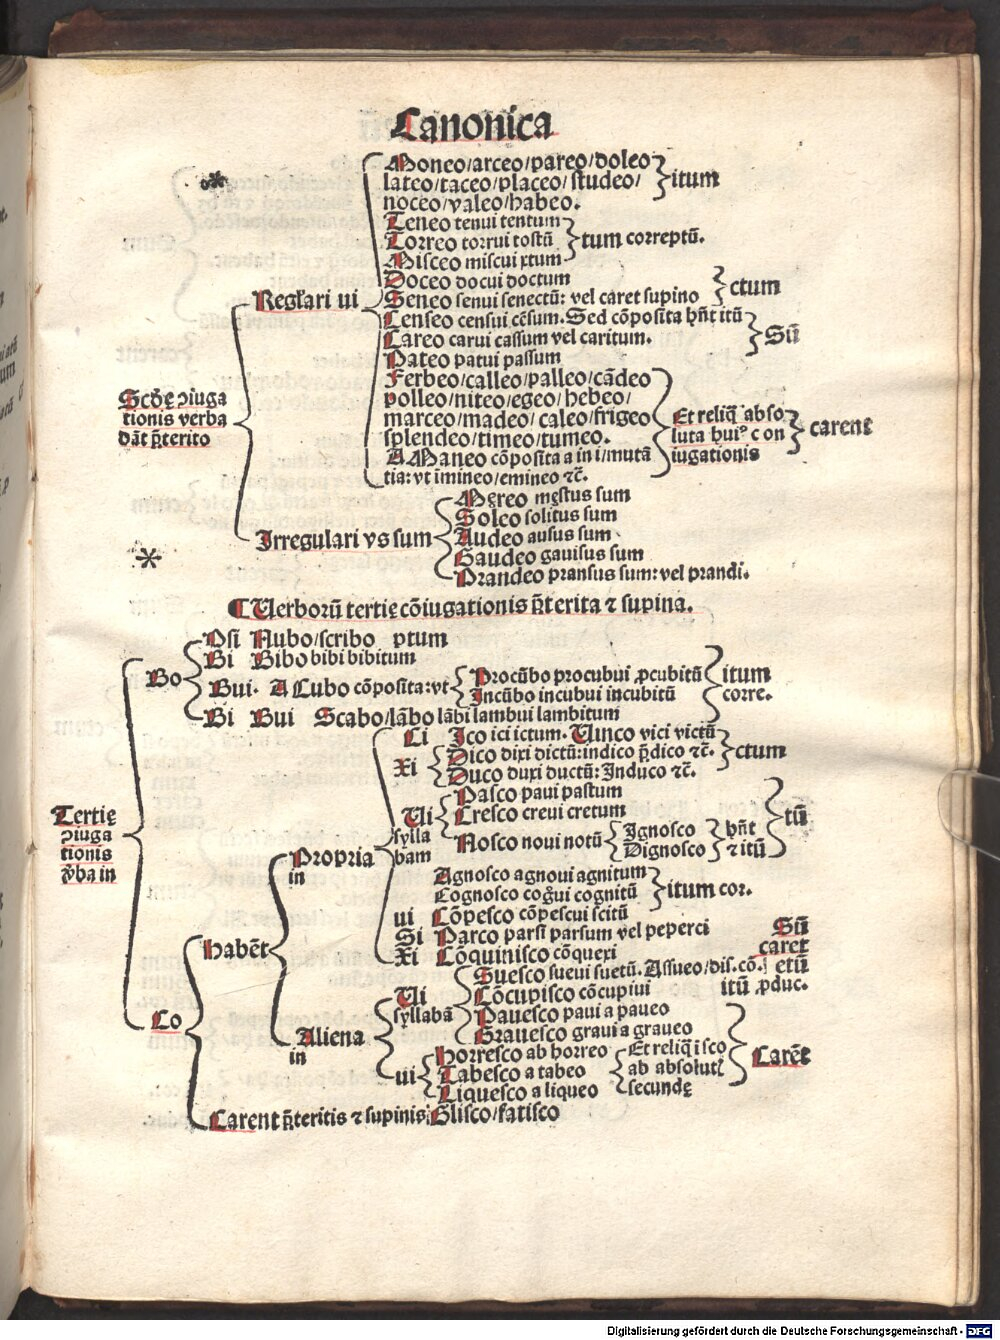 Canonica
Moneo/arceo/pareo/doleo
lateo/taceo/placeo/studeo/ itum
noceo/valeo/habeo.
Teneo tenui tentum
Torreo torrui tostū tum correptū.
Misceo miscui xtum
Doceo docui doctum
Seneo senui senectū: vel caret supino ctum
Regľari ui
Censeo censui cēsum. Sed cōposita hn̄t itū
Careo carui cassum vel caritum. Sū
Pateo patui passum
Ferbeo/calleo/palleo/cādeo
polleo/niteo/egeo/hebeo/
marceo/madeo/caleo/frigeo
splendeo/timeo/tumeo.
A Maneo cōposita a in i/mutā
tia: vt imineo/emineo ⁊c̄.
Et reliq̄ abso
luta huiꝰ con
iugationis
carent
Scđę ↄiuga
tionis verba
dāt p̄terito
Irregulari vs sum
Męreo męstus sum
Soleo solitus sum
Audeo ausus sum
Gaudeo gauisus sum
Prandeo pransus sum: vel prandi.
¶ Verborū tertię cōiugationis p̄terita ⁊ supina.
Bo
Psi Nubo/scribo ptum
Bi Bibo bibi bibitum
Bui. A Cubo cōposita: vt
Procūbo procubui ꝓcubitū
Incūbo incubui incubitū
itum
corre.
Bi Bui Scabo/lābo lābi lambui lambitum
Ci Ico ici ictum. Vinco vici victū
Xi Dico dixi dictū: indico p̄dico ⁊c̄. ctum
Duco duxi ductū: Induco ⁊c̄.
Pasco paui pastum
Vi Cresco creui cretum tū
sylla
bam
Nosco noui notū
Ignosco
Dignosco
hn̄t
⁊ itū
Tertię
ↄiuga
tionis
v̄ba in
Propria
in
Agnosco agnoui agnitum
Cognosco cog̃ui cognitū itum cor.
ui Cōpesco cōpescui scitū
Si Parco parsi parsum vel peperci Sū
Xi Cōquinisco cōquexi caret
Habēt
Suesco sueui suetū. Assueo/dis. cō. etū
Vi Cōcupisco cōcupiui itū ꝓduc.
syllabā Pauesco paui a paueo
Grauesco graui a graueo
Co
Aliena
in
Horresco ab horreo
ui Tabesco a tabeo
Liquesco a liqueo
Et reliq̄ isco
ab absolutį
secundę
Carēt
Carent p̄teritis ⁊ supinis: Glisco/fatisco
Digitalisierung gefördert durch die Deutsche Forschungsgemeinschaft - DFG